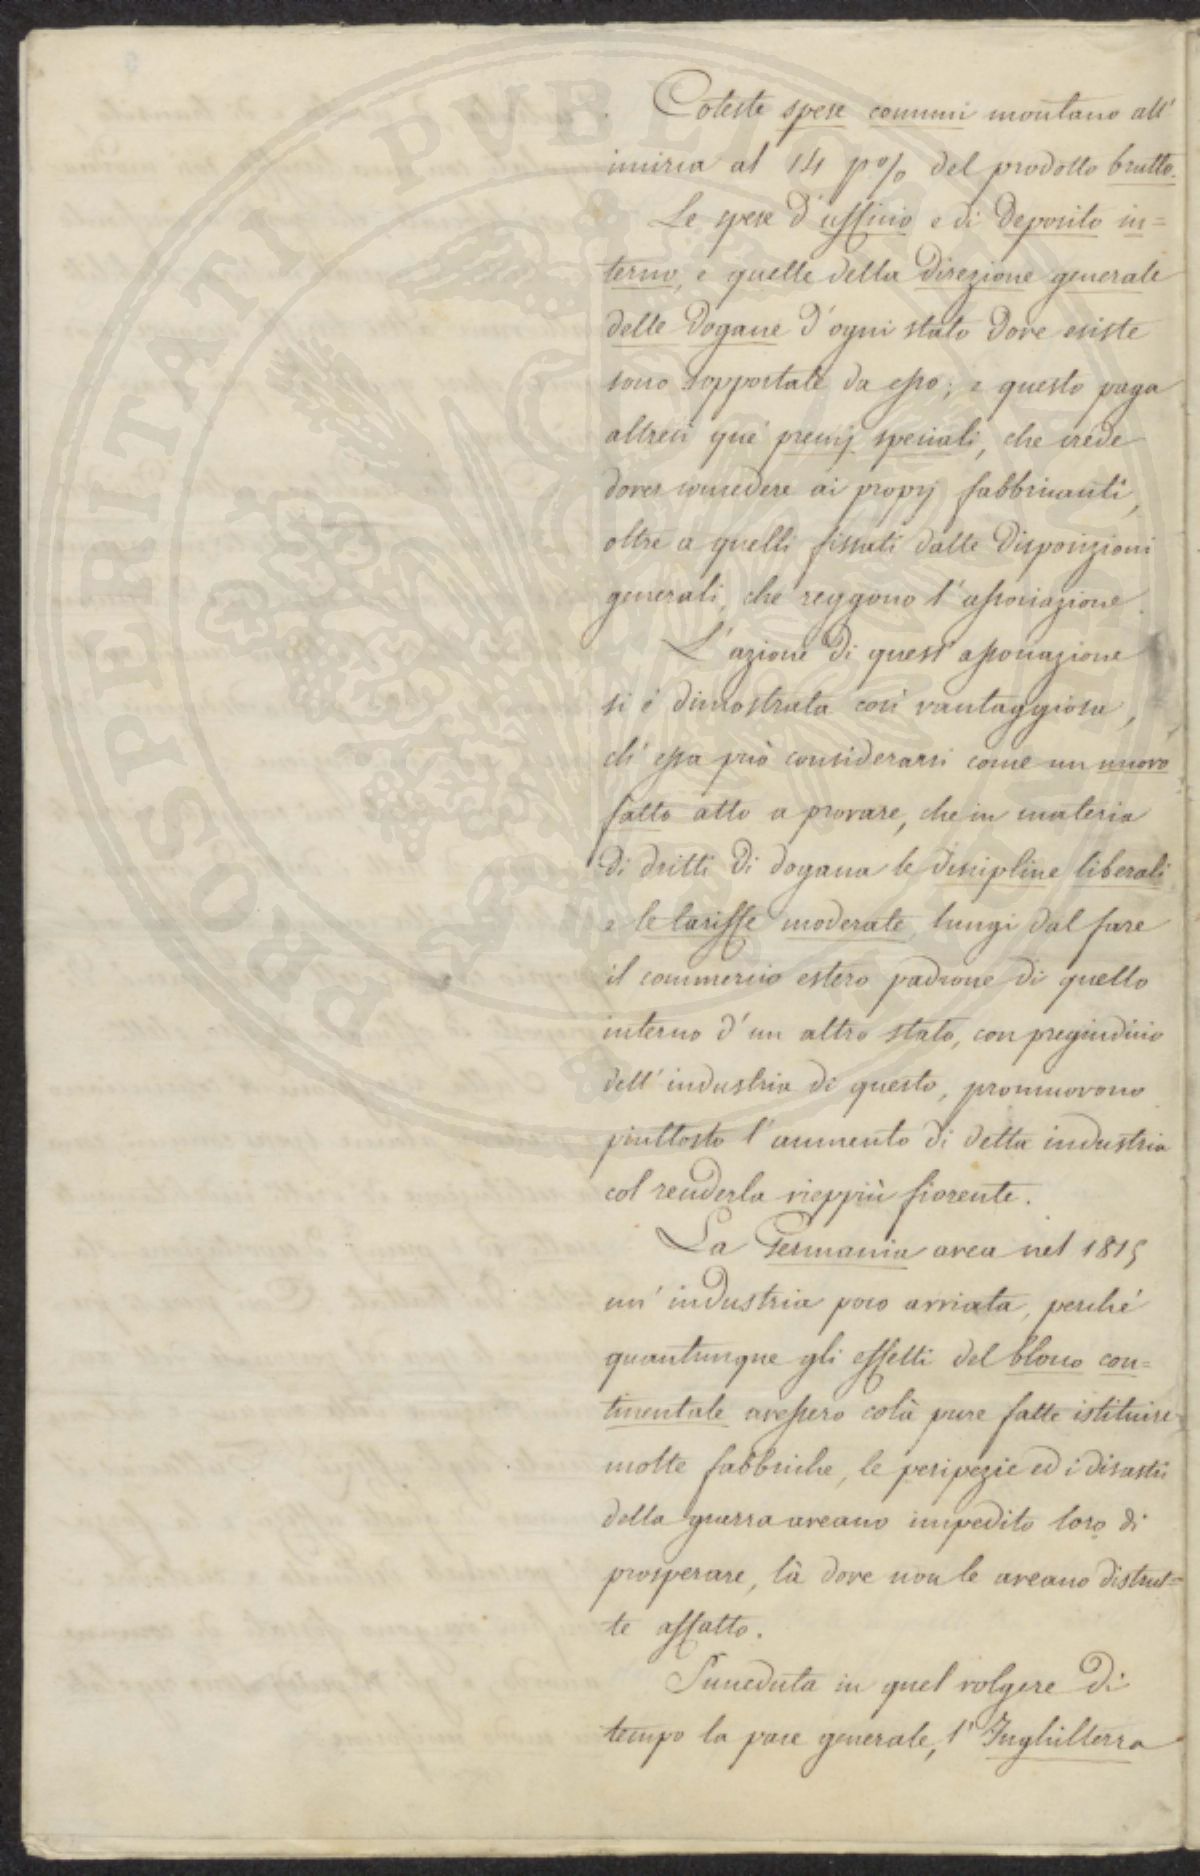 Coteste spese comuni montano all'
incirca al 14 p% del prodotto brutto.
Le spese d'ufficio e di deposito in=
terno, e quelle della direzione generale
delle Dogane d'ogni stato dove esiste
sono sopportate da esso; e questo paga
altresì que' premij speciali, che crede
dover concedere ai proprj fabbricanti,
oltre a quelli fissati dalle disposizioni
generali, che reggono l'associazione.
L'azione di quest'associazione
si è dimostrata così vantaggiosa,
ch'essa può considerarsi come un nuovo
fatto atto a provare, che in materia
di dritti di dogana le discipline liberali
e le tariffe moderate, lungi dal fare
il commercio estero padrone di quello
interno d'un altro stato, con pregiudicio
dell'industria di questo, promuovono
piuttosto l'aumento di detta industria
col renderla vieppiù fiorente.
La Germania avea nel 1815
un'industria poco avviata, perché
quantunque gli effetti del blocco con=
tinentale avessero colà pure fatte istituire
molte fabbriche, le peripezie ed i disastri
della guerra aveano impedito loro di
prosperare, là dove non le aveano distrut=
te affatto.
Succeduta in quel volgere di
tempo la pace generale, l'Inghilterra
PROSPERITATI PUBLI